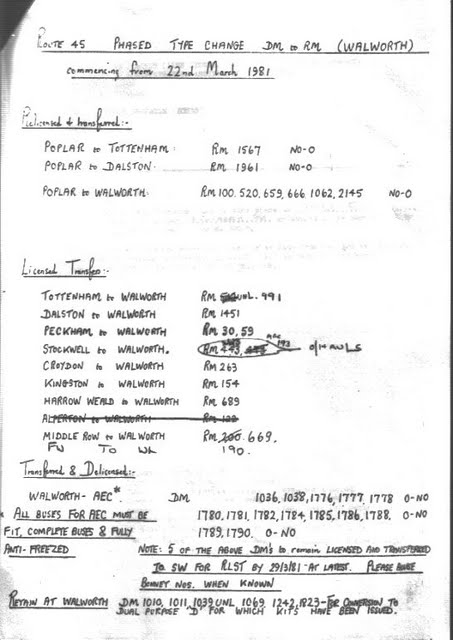 ROUTE 45 PHASED TYPE CHANGE DM to RM (WALWORTH)
commencing from 22nd March 1981
Relicensed & transferred:-
POPLAR to TOTTENHAM: RM 1567 NO-O
POPLAR to DALSTON: RM 1961 NO-O
POPLAR to WALWORTH: RM 100. 520, 659, 666 1062, 2145 NO-O
Licensed Transfers:-
TOTTENHAM to WALWORTH RM UNL. 991
DALSTON to WALWORTH RM 1451
PECKHAM to WALWORTH RM 30, 59
STOCKWELL to WALWORTH. RM O/HAULS
CROYDON to WALWORTH RM 263
KINGSTON to WALWORTH RM 154
HARROW WEALD to WALWORTH RM 689
ALPERTON to WALWORTH RM 128
MIDDLE ROW to WALWORTH RM 200. 669.
TO WL 190.
Transferred & Delicensed:-
WALWORTH - AEC* DM 1036, 1038, 1776, 1777, 1778 O-NO
* ALL BUSES FOR AEC MUST BE 1780, 1781, 1782, 1784, 1785, 1786, 1788. O-NO
FIT, COMPLETE BUSES & FULLY 1789, 1790. O-NO
ANTI-FREEZED NOTE: 5 OF THE ABOVE DM'S to REMAIN LICENSED AND TRANSFERRED
TO SW FOR RLST BY 29/3/81 - AT LATEST. PLEASE
BONNET NOS. WHEN KNOWN
RETAIN AT WALWORTH DM 1010, 1011, 1039 UNL 1069, 1242, 1823 - FOR CONVERSION TO
DUAL PURPOSE 'D' FOR WHICH KITS HAVE BEEN ISSUED.